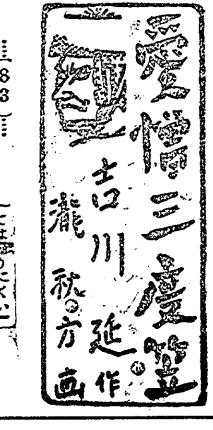 愛憎三度笠
吉川延作
瀧秋方画
83